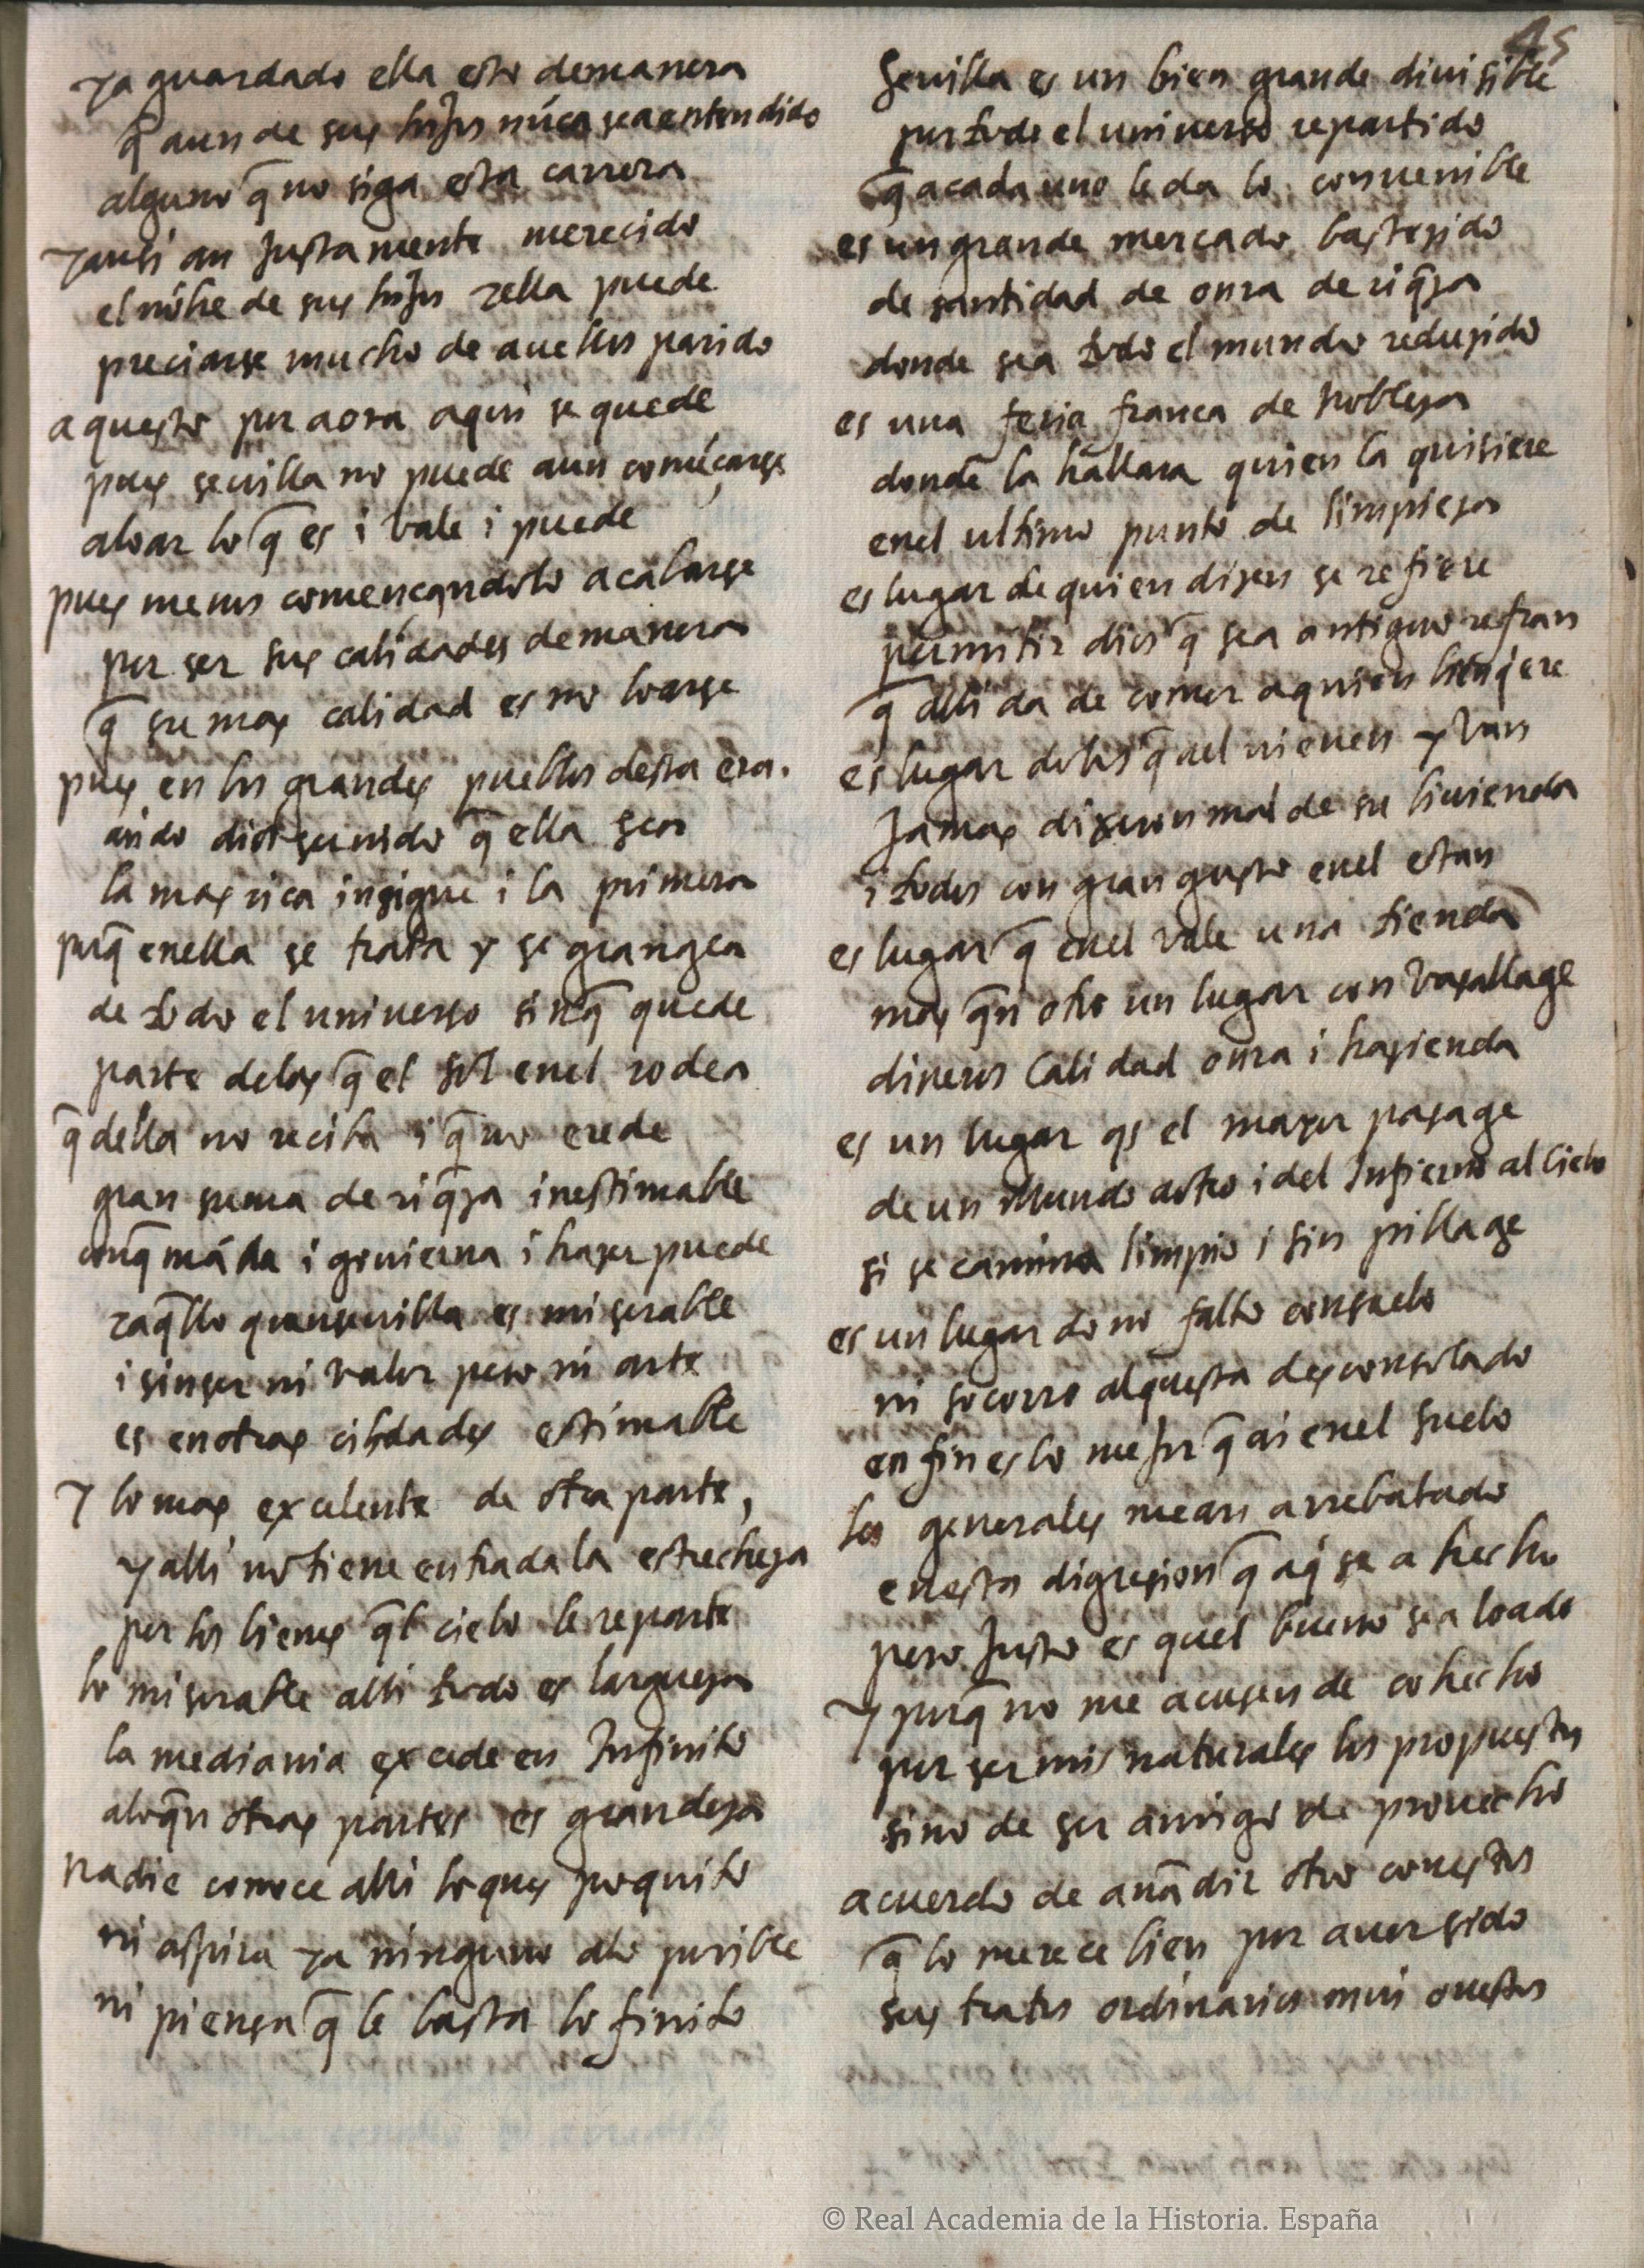 45
ya guardado ella esto demanera
q̃ aun de sus hijos núca sea entendido
alguno q̃ no siga esta carrera
yansi an Justamente merecido
el nõbre de sus hijos y ella puede
preciarse mucho de auellos parido
aquesto por aora aqui se quede
pues seuilla no puede aun comẽçarse
aloar lo q̃ es i vale i puede
pues menos començandolo acabarse
por ser sus calidades demanera
q̃ su mas calidad es no loarse
pues en los grandes pueblos desta era.
aun do seruido q̃ ella sea
la mas rica insigne i la primera
porq̃ enella se trata y se grangea
de todo el universo sinq̃ quede
parte delos q̃ el sol enel rodea
q̃ della no reciba i q̃ no erede
gran suma de riq̃za inestimable
conq̃ mãda i govierna i hazer puede
yaq̃llo quenseuilla es miserable
i sinser ni valor peso ni arte
es enotras cibdades estimable
Y lo mas excelente de otra parte,
y alli no tiene entrada la estrecheza
por los bienes q̃l cielo le reparte
lo miserable alli todo es largueza
la mediania excede en Infinito
aloq̃n otras partes es grandeza
nadie conoce alli loques poquito
ni aspira ya ninguno alo posible
ni piensa q̃ le basta lo finito
Seuilla es un bien grande diuisible
por todo el universo repartido
q̃ acada uno le da lo convenible
es un grande mercado bastezido
de santidad de onra de riq̃za
donde sea todo el mundo reduzido
es una feria franca de nobleza
donde la hallara quien la quisiere
enel ultimo punto de limpieza
es lugar de quien dizen se refiere
permitir dios q̃ sea antiguo refran
q̃ alli da de comer aquien
es lugar delos q̃ ael vienen y van
Jamas dixeron mal de su bivienda
i todos con gran gusto enel estan
es lugar q̃ enel vale una tienda
mas q̃n otro un lugar con vasallage
dineros Calidad onra i hazienda
es un lugar qs el mayor pasage
de un Mundo aotro i del Infierno al Cielo
si se camina limpio i sin pillage
es un lugar do no falto consuelo
ni socorro alquesta desconsolado
en fin es lo mejor q̃ ai enel suelo
los generales mean arrebatado
enesta digresion q̃ aq̃ se a hecho
pero Justo es quel bueno sea loado
Y porq̃ no me acusen de cohecho
por ser mis naturales los propuestos
sino de ser amigo de provecho
acuerdo de anãdir otro conestos
q̃ lo merece bien por auer sido
sus tratos ordinarios mui onestos
© Real Academia de la Historia. España